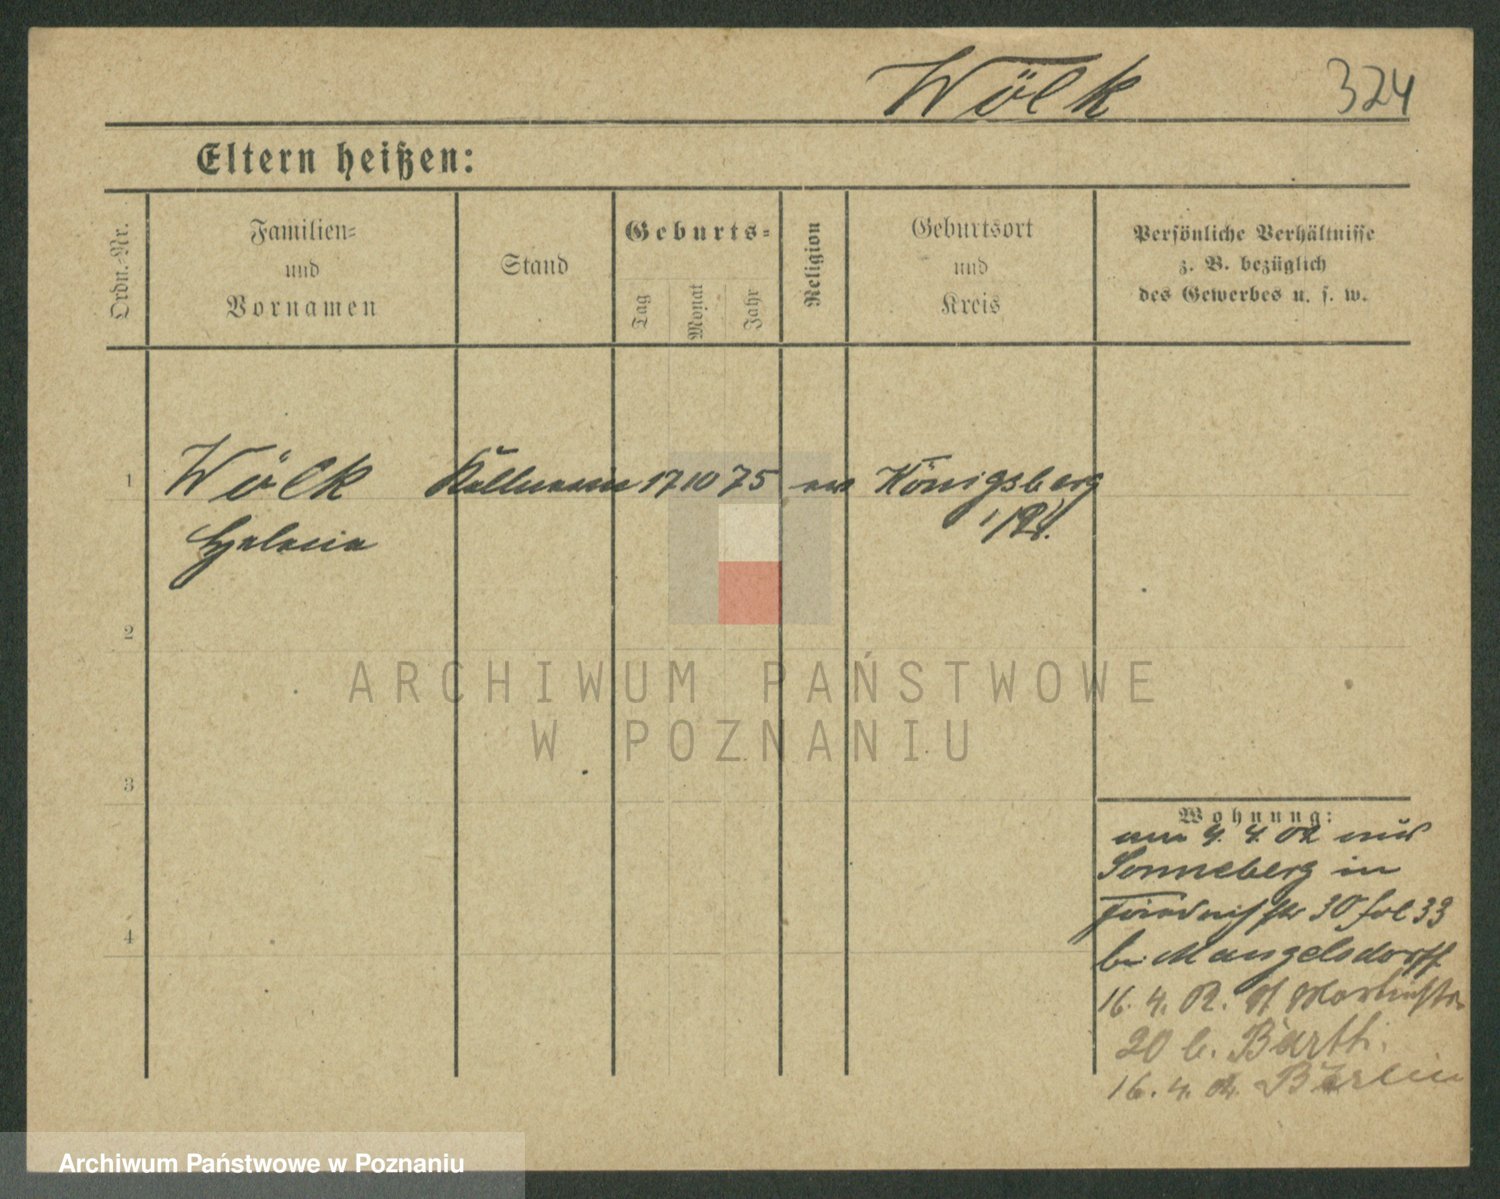 Wölk 324
Eltern heißen:
Ordn.-Nr.
Familien-
und
Vornamen
Stand
Geburts-
Tag
Monat
Jahr
Religion
Geburtsort
und
Kreis
Persönliche Verhältnisse
z. B. bezüglich
des Gewerbes u. s. w.
1 Wölk Kellnerin 17 10 75 ev Königsberg
Helene i/Pr.
2
ARCHIWUM PAŃSTWOWE
W POZNANIU
3
Wohnung:
am 4. 4. 02 aus
Sonneberg in
30 33
bei Mangelsdorff
16. 4. 02. St Martinstr
20 b. Barth.
16. 4. 02. Berlin
4
Archiwum Państwowe w Poznaniu